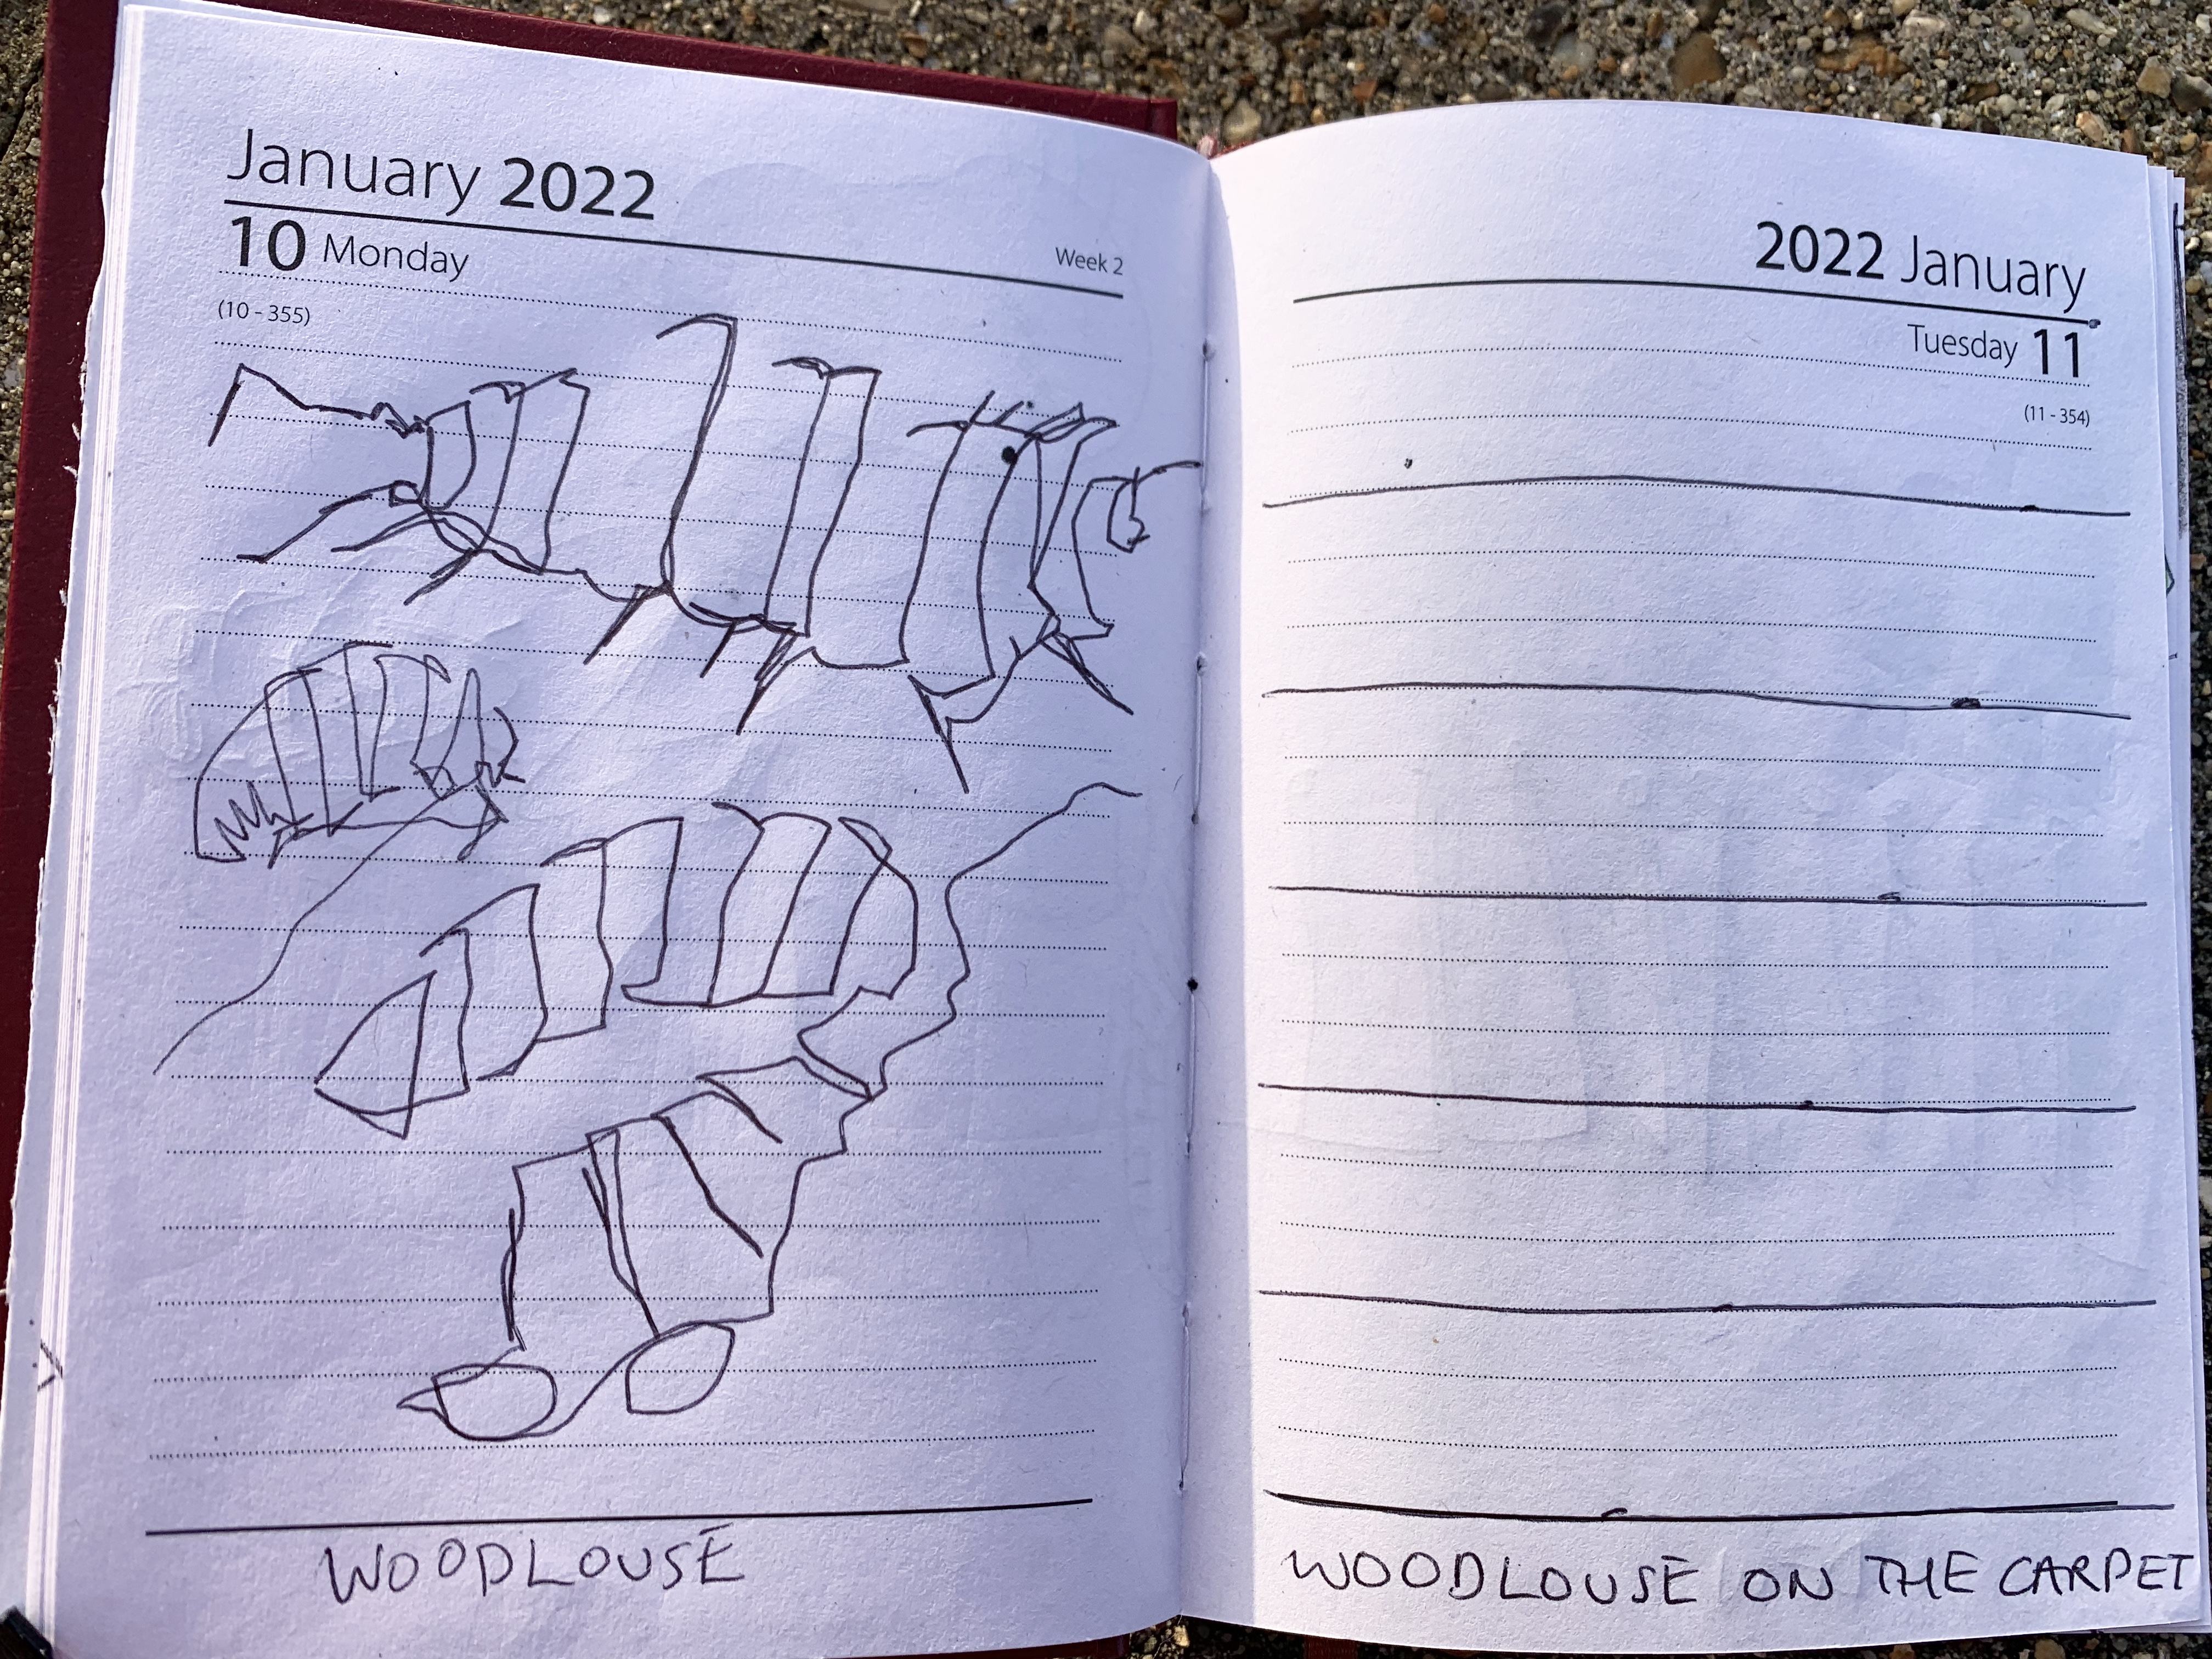 January 2022
10 Monday
Week 2
(10 - 355)
WOODLOUSE
2022 January
Tuesday 11
(11 - 354)
WOODLOUSE ON THE CARPET